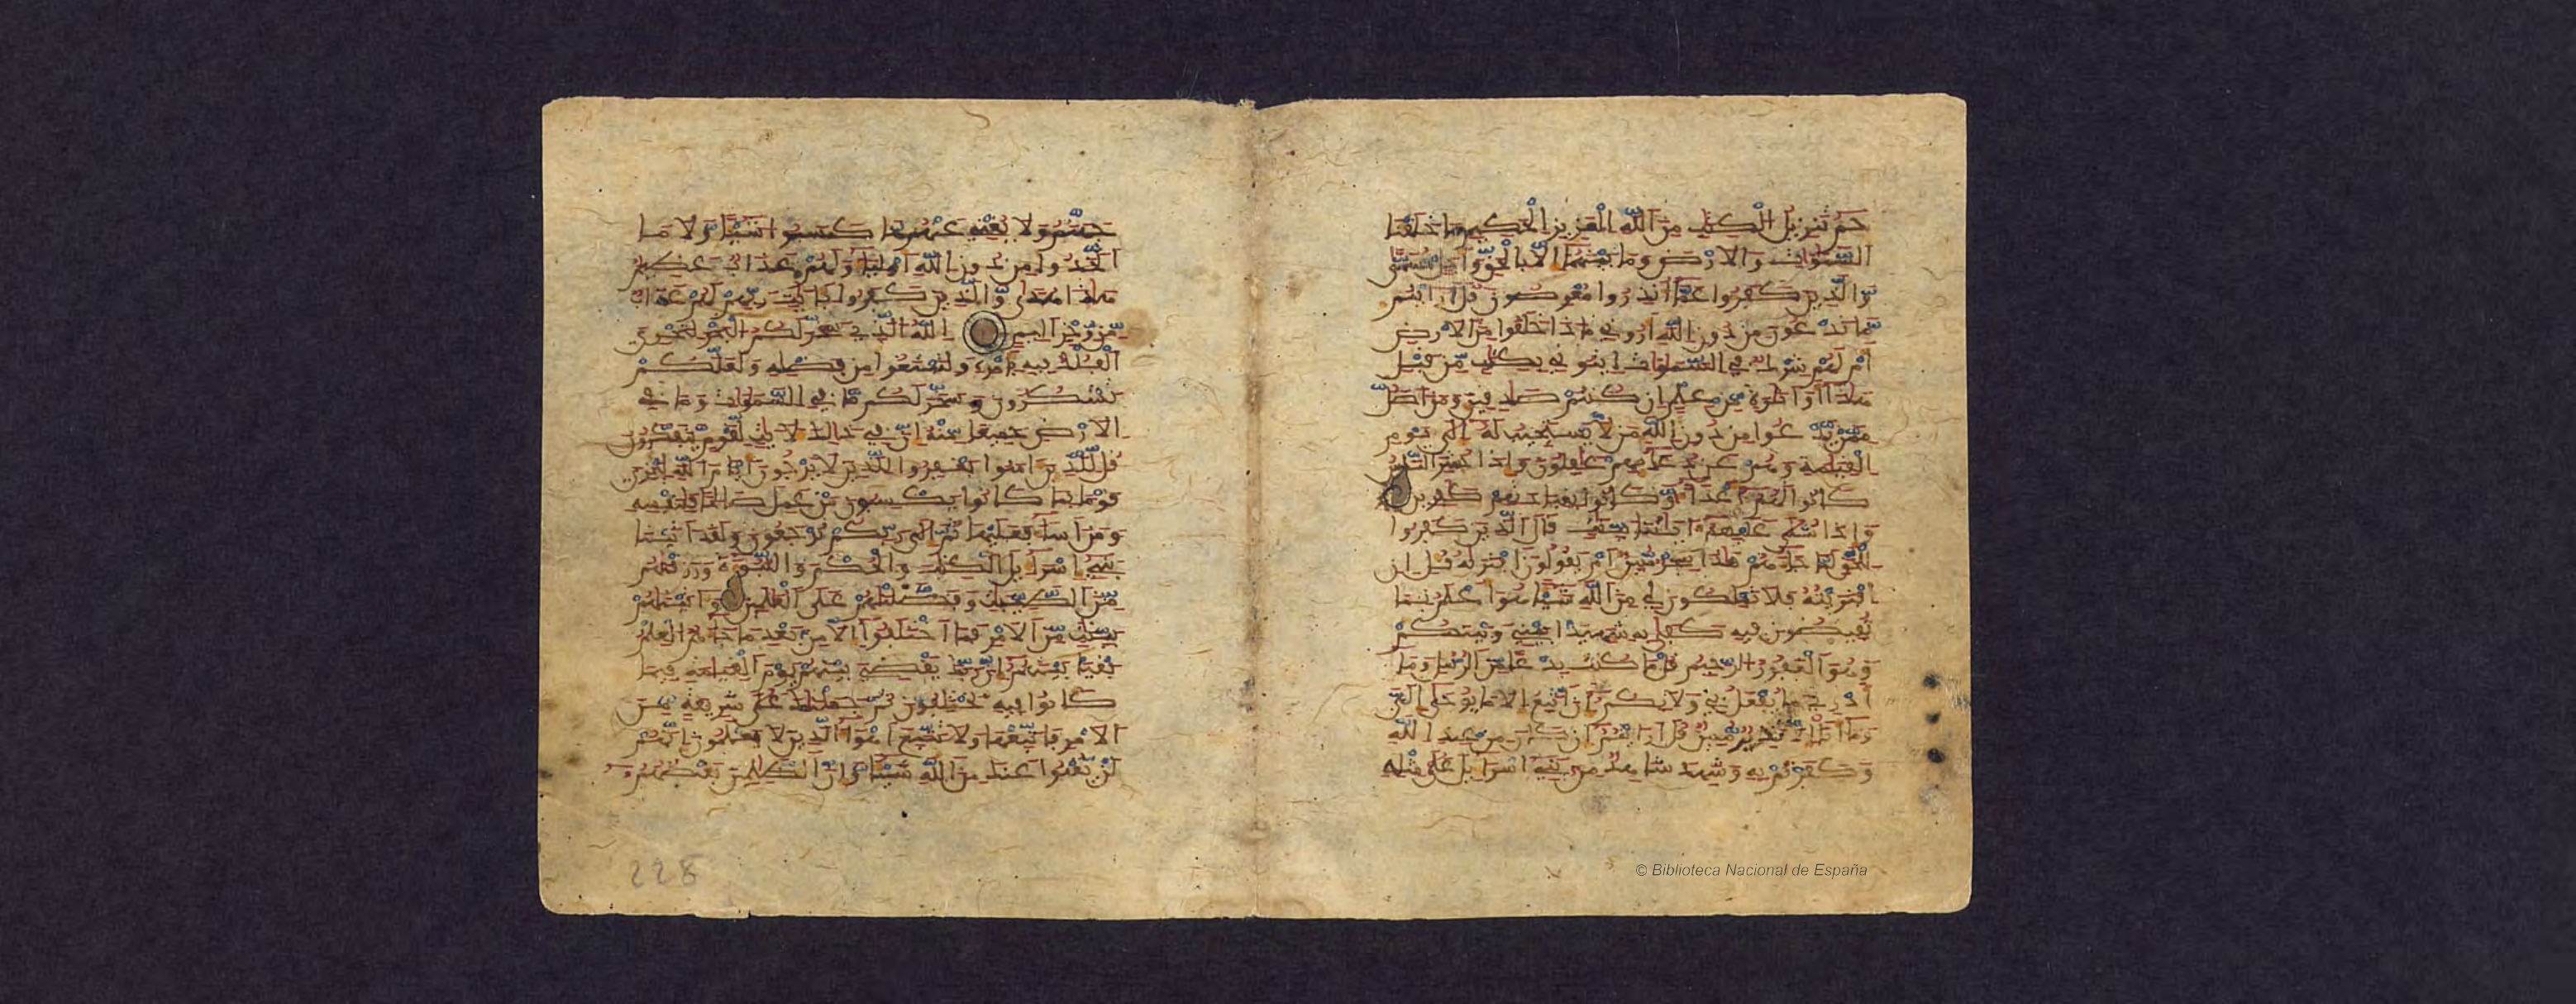 حم تنزيل الكتب من الله العزيز الحكيم ما خلقنا
السموت والارض وما بينهما الا بالحق واجل مسمى
والذين كفروا عما انذروا معرضون قل ارايتم
ما تدعون من دون الله ارونى ماذا خلقوا من الارض
ام لهم شرك فى السموت ايتونى بكتب من قبل
هذا او اثرة من علم ان كنتم صدقين ومن اضل
ممن يدعوا من دون الله من لا يستجيب له الى يوم
القيمة وهم عن دعايهم غفلون واذا حشر الناس
كانوا لهم اعداء وكانوا بعبادتهم كفرين
واذا تتلى عليهم ءايتنا بينت قال الذين كفروا
للحق لما جاءهم هذا سحر مبين ام يقولون افتريه قل ان
افتريته فلا تملكون لى من الله شيئا هو اعلم بما
تفيضون فيه كفى به شهيدا بينى وبينكم
وهو الغفور الرحيم قل ما كنت بدعا من الرسل وما
ادرى ما يفعل بى ولا بكم ان اتبع الا ما يوحى الى
وما انا الا نذير مبين قل ارايتم ان كان من عند الله
وكفرتم به وشهد شاهد من بنى اسراءيل على مثله
جهنم ولا يغنى عنهم ما كسبوا شيئا ولا ما
اتخذوا من دون الله اولياء ولهم عذاب عظيم
هذا هدى والذين كفروا بءايت ربهم لهم عذاب
من رجز اليم الله الذى سخر لكم البحر لتجرى
الفلك فيه بامره ولتبتغوا من فضله ولعلكم
تشكرون وسخر لكم ما فى السموت وما فى
الارض جميعا منه ان فى ذلك لايت لقوم يتفكرون
قل للذين ءامنوا يغفروا للذين لا يرجون ايام الله ليجزى
قوما بما كانوا يكسبون من عمل صلحا فلنفسه
ومن اساء فعليها ثم الى ربكم ترجعون ولقد ءاتينا
بنى اسراءيل الكتب والحكم والنبوءة ورزقنهم
من الطيبت وفضلنهم على العلمين وءاتينهم
بينت من الامر فما اختلفوا الا من بعد ما جاءهم العلم
بغيا بينهم ان ربك يقضى بينهم يوم القيمة فيما
كانوا فيه يختلفون ثم جعلنك على شريعة من
الامر فاتبعها ولا تتبع اهواء الذين لا يعلمون انهم
لن يغنوا عنك من الله شيئا وان الظلمين بعضهم و
228
© Biblioteca Nacional de España